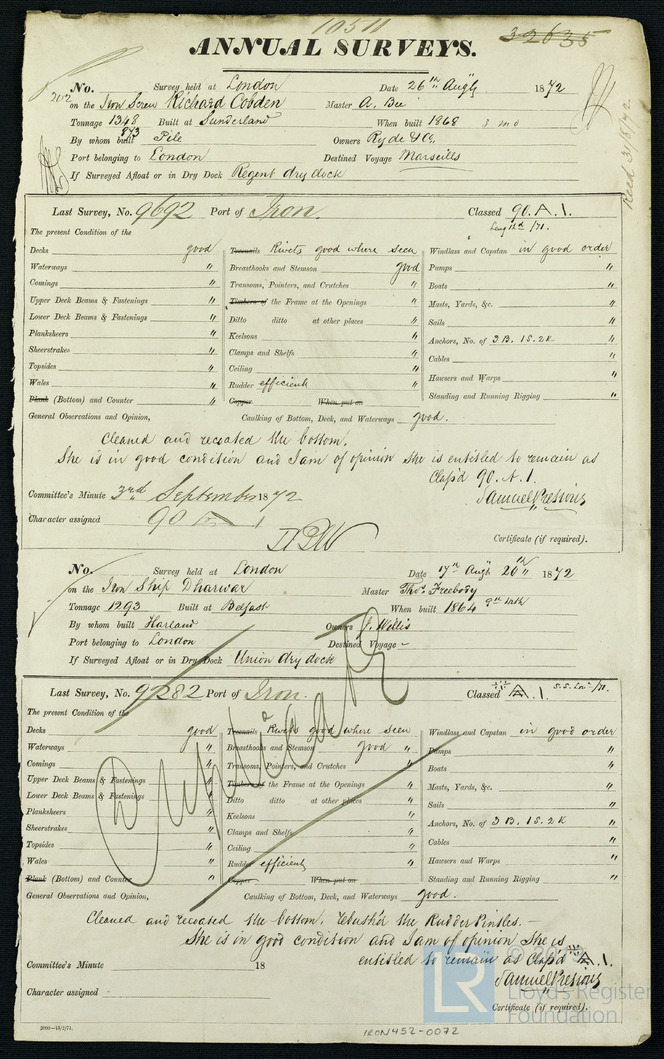 10511
32635
ANNUAL SURVEYS.
No. 202 Survey held at London Date 26th Augt 1872
on the Iron Screw Richard Cobden Master A. Bee
Tonnage 1348 Built at Sunderland When built 1868 3 mo
873
By whom built Pile Owners Ryde & Co.
Port belonging to London Destined Voyage Marseills
If Surveyed Afloat or in Dry Dock Regent dry dock
Recd 31/8/72
Last Survey, No. 9692 Port of Iron. Classed 90.A.1.
The present Condition of the
Decks good Treenails Rivets good where seen Windlass and Capstan in good order
Waterways " Breasthooks and Stemson good Pumps "
Comings " Transoms, Pointers, and Crutches " Boats "
Upper Deck Beams & Fastenings " Timbers of the Frame at the Openings " Masts, Yards, &c. "
Lower Deck Beams & Fastenings " Ditto ditto at other places " Sails "
Planksheers " Keelsons " Anchors, No. of 3 B. 1S. 2K "
Sheerstrakes " Clamps and Shelfs " Cables "
Topsides " Ceiling " Hawsers and Warps "
Wales " Rudder efficient " Standing and Running Rigging "
Plank (Bottom) and Counter " Copper When put on
General Observations and Opinion, Caulking of Bottom, Deck, and Waterways good.
Cleaned and recoated the bottom.
She is in good condition and I am of opinion she is entitled to remain as
Class'd 90.A.1.
Samuel Pretious
Committee's Minute 3rd September 1872
Character assigned 90 A 1
Certificate (if required).
No. Survey held at London Date 17th Augt 20th " 1872
on the Iron Ship Dharwar Master Thos. Freebody
Tonnage 1293 Built at Belfast When built 1864 9th Mth
By whom built Harland Owners J. Willis
Port belonging to London Destined Voyage -
If Surveyed Afloat or in Dry Dock Union dry dock
Duplicate
Last Survey, No. 9282 Port of Iron. Classed A.1.
The present Condition of the
Decks good Treenails Rivets good where seen Windlass and Capstan in good order
Waterways " Breasthooks and Stemson good " Pumps "
Comings " Transoms, Pointers, and Crutches " Boats "
Upper Deck Beams & Fastenings " Timbers of the Frame at the Openings " Masts, Yards, &c. "
Lower Deck Beams & Fastenings " Ditto ditto at other places " Sails "
Planksheers " Keelsons " Anchors, No. of 3 B. 1S. 2K "
Sheerstrakes " Clamps and Shelfs " Cables "
Topsides " Ceiling " Hawsers and Warps "
Wales " Rudder efficient " Standing and Running Rigging "
Plank (Bottom) and Counter " Copper When put on
General Observations and Opinion, Caulking of Bottom, Deck, and Waterways good.
Cleaned and recoated the bottom. rebush'd the Rudder Pintles. -
She is in good condition and I am of opinion She is
entitled to remain as Class'd A.1.
Samuel Pretious
Committee's Minute 18
Character assigned
Certificate (if required).
LR
Lloyd's Register
Foundation
IRON452-0072